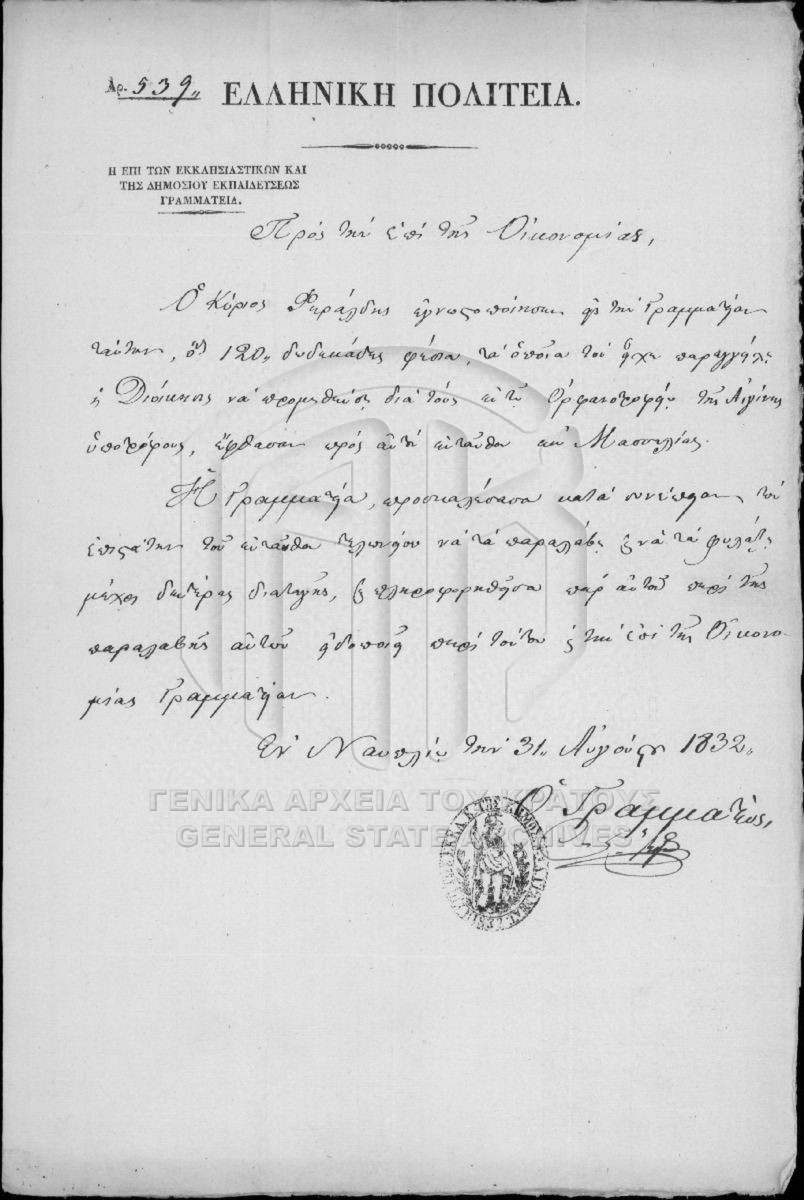 Αρ. 539,,
ΕΛΛΗΝΙΚΗ ΠΟΛΙΤΕΙΑ.
Η ΕΠΙ ΤΩΝ ΕΚΚΛΗΣΙΑΣΤΙΚΩΝ ΚΑΙ
ΤΗΣ ΔΗΜΟΣΙΟΥ ΕΚΠΑΙΔΕΥΣΕΩΣ
ΓΡΑΜΜΑΤΕΙΑ.
Πρός τήν ἐπί τῆς Οἰκονομίας,
Ὁ Κύριος Φεράλδης ἐγνωστοποίησεν εἰς τήν Γραμματείαν
ταύτην, ὅτι 120,, δωδεκάδες φέσια, τά ὁποῖα τοῦ εἶχε παραγγείλει
ἡ Διοίκησις νά προμηθεύσῃ διά τούς ἐν τῷ Ὀρφανοτροφείῳ τῆς Αἰγίνης
ὑποτρόφους, ἔφθασαν πρός αὐτόν ἐνταῦθα ἐκ Μασσαλίας.
Ἡ Γραμματεία, προσκαλέσασα κατά συνέπειαν τόν
ἐπιστάτην τοῦ ἐνταῦθα τελωνείου νά τά παραλάβῃ καί νά τά φυλάττῃ
μέχρι δευτέρας διαταγῆς, καί πληροφορηθεῖσα παρ' αὐτοῦ περί τῆς
παραλαβῆς αὐτῶν εἰδοποιεῖ περί τούτου καί τήν ἐπί τῆς Οἰκονο-
μίας Γραμματείαν.
Ἐν Ναυπλίῳ τήν 31,, Αὐγούστου 1832,,
Ὁ Γραμματεύς,
ΓΕΝΙΚΑ ΑΡΧΕΙΑ ΤΟΥ ΚΡΑΤΟΥΣ
GENERAL STATE ARCHIVES